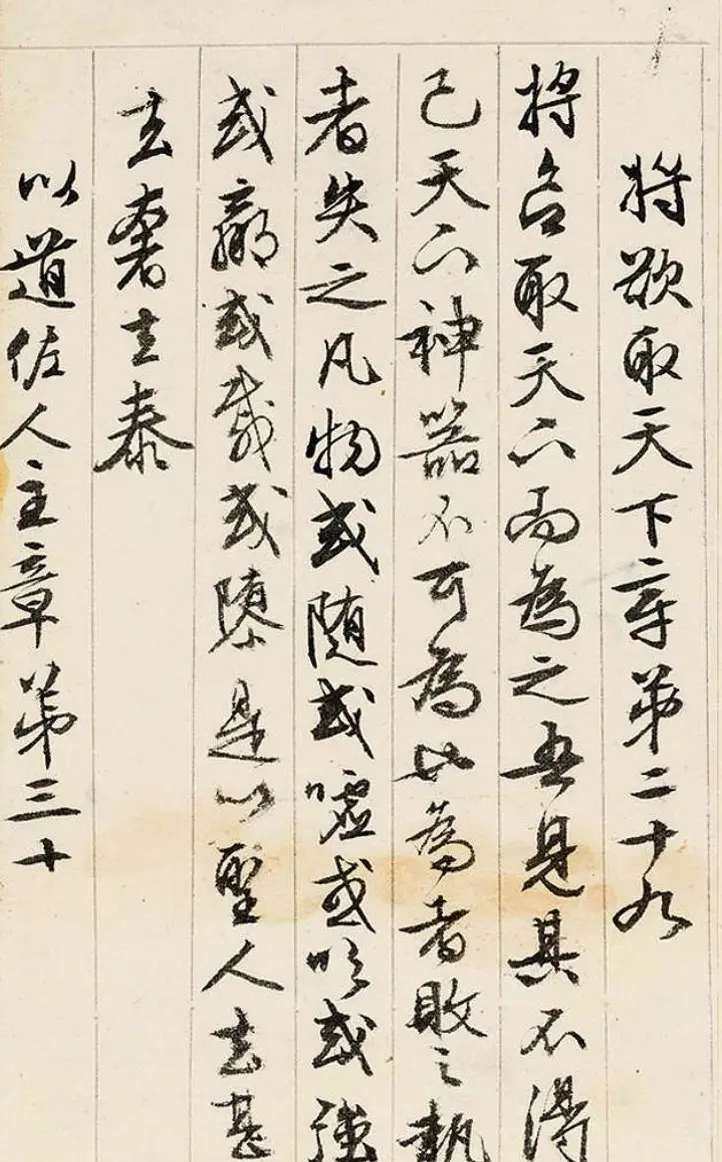 將欲取天下章第二十九
將取天下而為之吾見其不得
已天下神器不可為也為者敗之執
者失之凡物或隨或噓或吹或強
或羸或載或隳是以聖人去甚
去奢去泰
以道佐人主章第三十